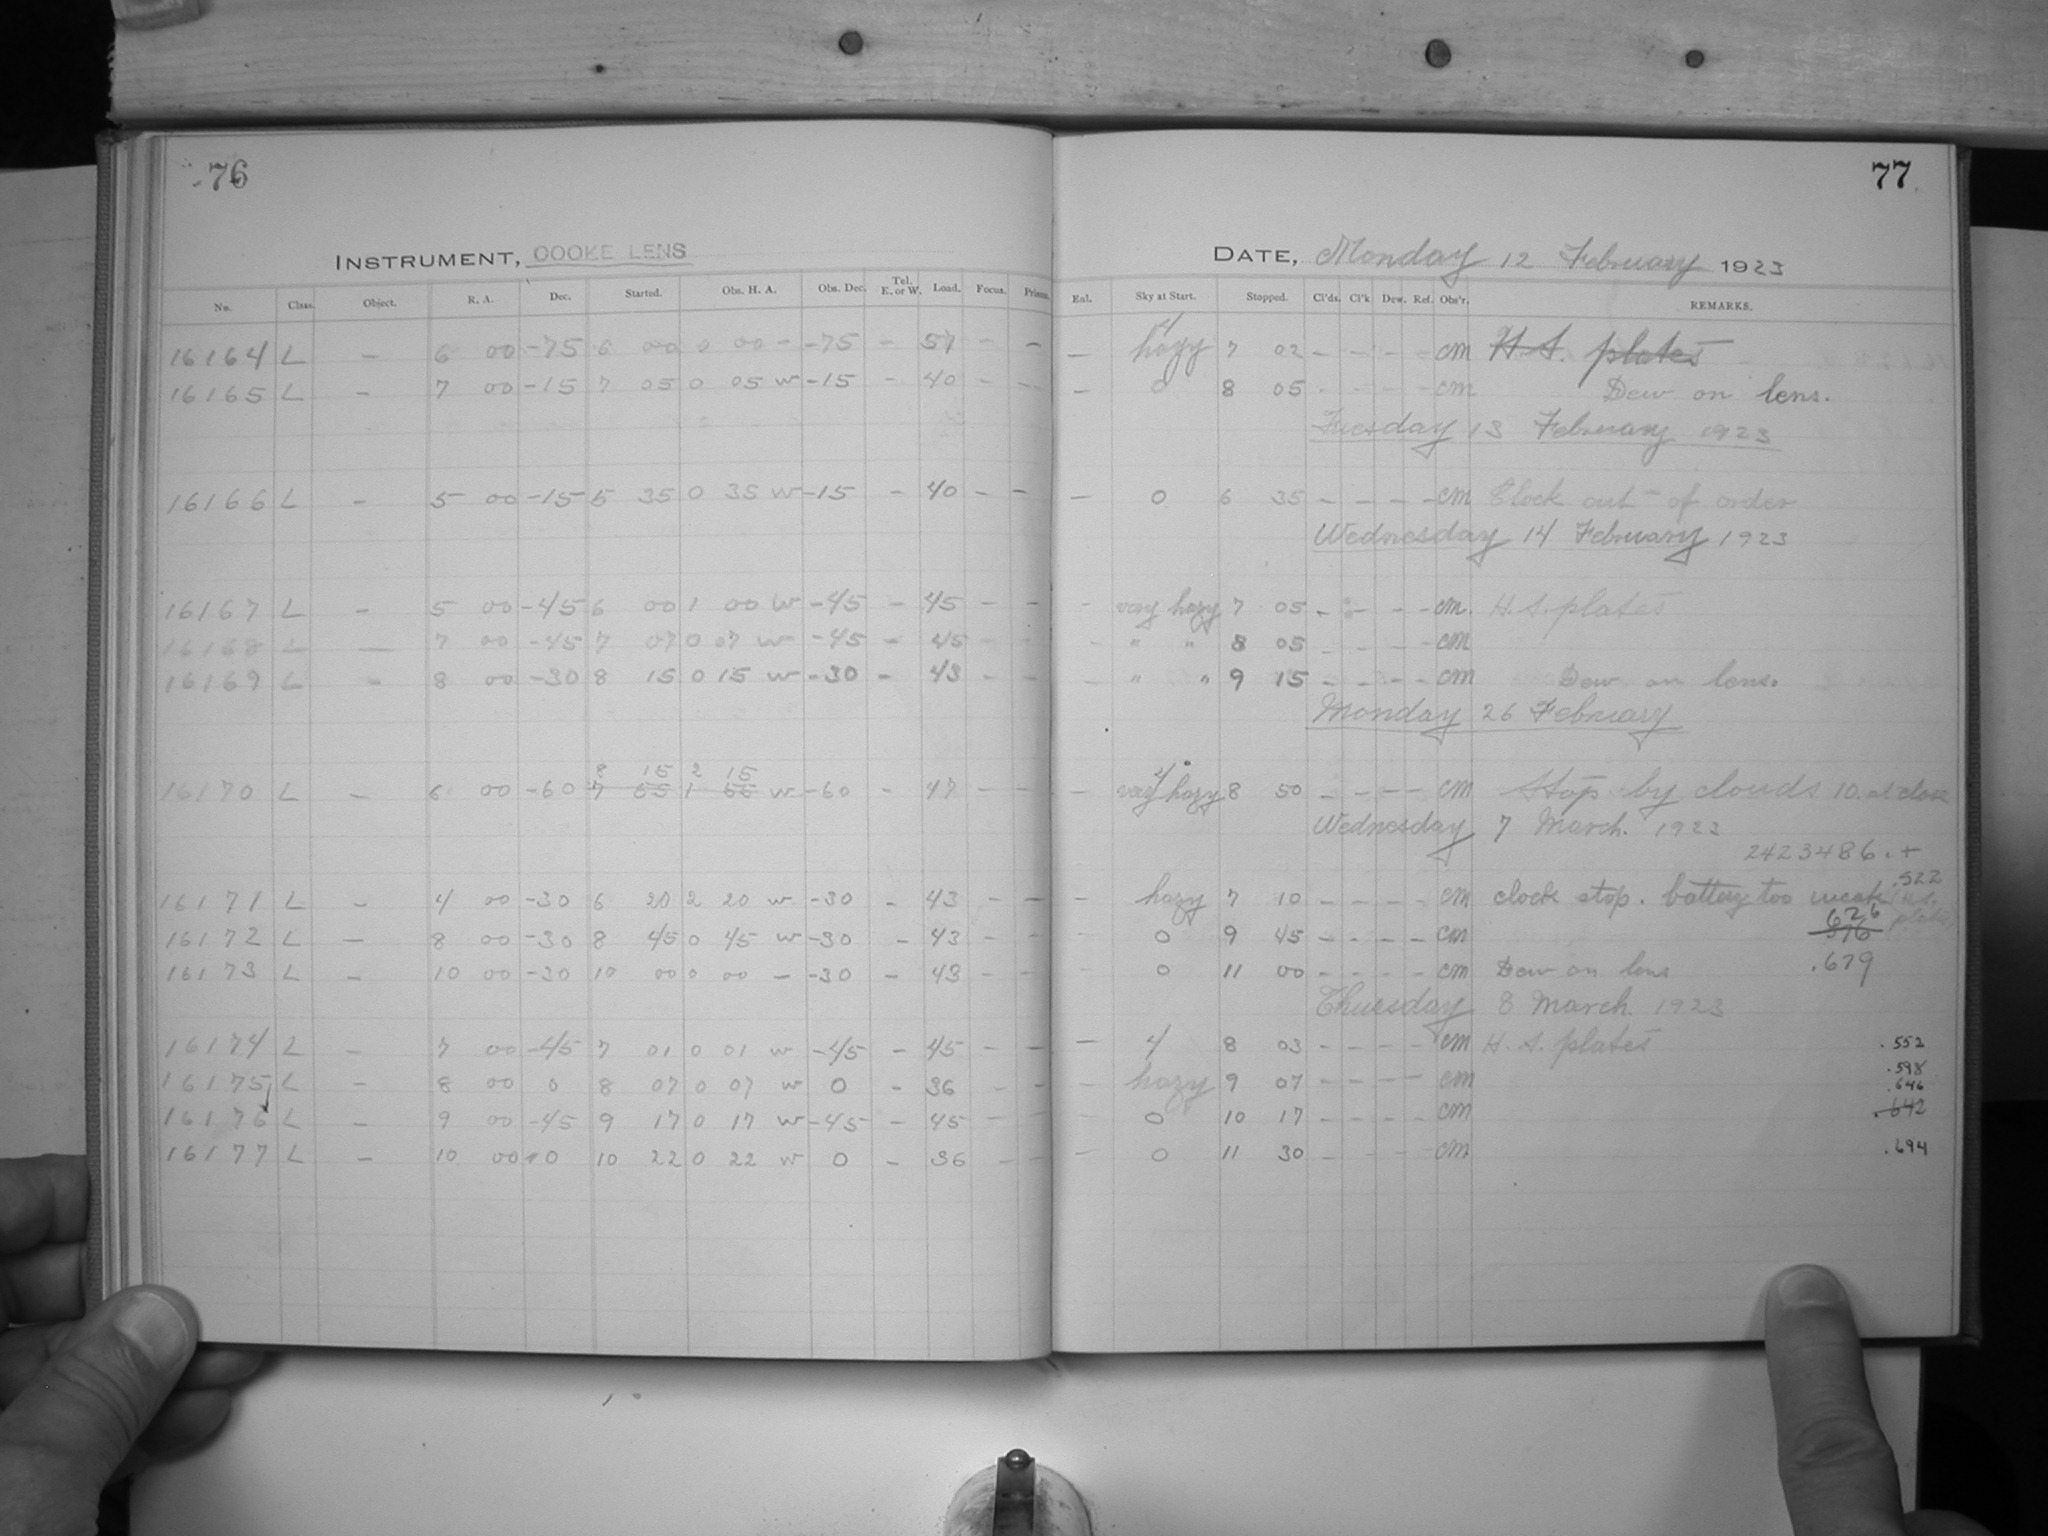 76
INSTRUMENT, COOKE LENS
No. Class. Object. R. A. Dec. Started. Obs. H. A. Obs. Dec. Tel. E. or W. Load. Focus. Prisms.
16164 L – 6 00 -75 6 00 0 00 – -75 – 57 – –
16165 L – 7 00 -15 7 05 0 05 w -15 – 40 – –
16166 L – 5 00 -15 5 35 0 35 w -15 – 40 – –
16167 L – 5 00 -45 6 00 1 00 w -45 – 45 – –
16168 L – 7 00 -45 7 07 0 07 w -45 – 45 – –
16169 L – 8 00 -30 8 15 0 15 w -30 – 43 – –
8 15 2 15
16170 L – 6 00 -60 7 55 1 55 w -60 – 47 – –
16171 L – 4 00 -30 6 20 2 20 w -30 – 43 – –
16172 L – 8 00 -30 8 45 0 45 w -30 – 43 – –
16173 L – 10 00 -30 10 00 0 00 – -30 – 43 – –
16174 L – 7 00 -45 7 01 0 01 w -45 – 45 – –
16175 L – 8 00 0 8 07 0 07 w 0 – 36 – –
16176 L – 9 00 -45 9 17 0 17 w -45 – 45 – –
16177 L – 10 00 0 10 22 0 22 w 0 – 36 – –
77
DATE, Monday 12 February 1923
Eal. Sky at Start. Stopped. Cl'ds. Cl'k Dew. Ref. Obs'r. REMARKS.
– hazy 7 02 – – – – cm H. S. plates
– 0 8 05 – – – – cm Dew on lens.
Tuesday 13 February 1923
– 0 6 35 – – – – cm Clock out of order
Wednesday 14 February 1923
– very hazy 7 05 – – – – cm. H. S. plates
– " " 8 05 – – – – cm
– " " 9 15 – – – – cm Dew on lens.
Monday 26 February
4
– very hazy 8 50 – – – – cm Stop by clouds 10. at close
Wednesday 7 March. 1923
2423486.+
.522
– hazy 7 10 – – – – cm clock stop. battery too weak (H.S. plates)
626
– 0 9 45 – – – – cm 576
– 0 11 00 – – – – cm Dew on lens .679
Thuesday 8 March. 1923
– 4 8 03 – – – – cm H. S. plates .552
– hazy 9 07 – – – – cm .598
.646
– 0 10 17 – – – – cm .642
– 0 11 30 – – – – cm .694